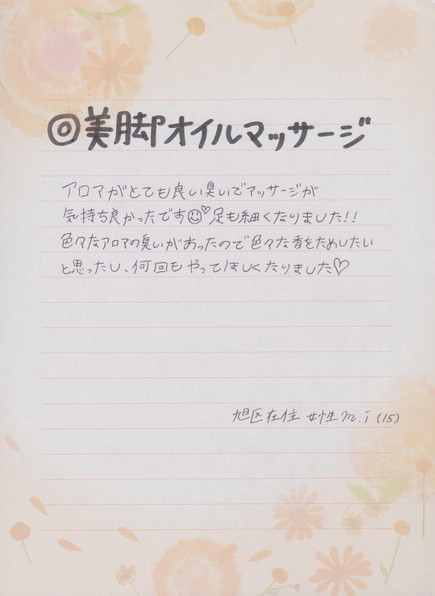 ◎美脚オイルマッサージ
アロマがとても良い臭いでマッサージが
気持ち良かったです☺♡足も細くなりました!!
色々なアロマの臭いがあったので色々な香をためしたい
と思ったし、何回もやってほしくなりました♡
旭区在住 女性 m.i (15)